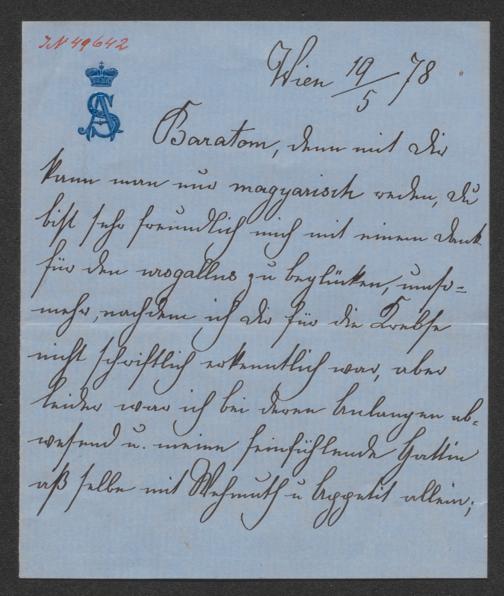 IN 49642
Wien 19/5 78
AS
Baratom, denn mit dir
kann man nur magyarisch reden, du
bist sehr freundlich mich mit einem Dank
für den urogallus zu beglücken, umso=
mehr, nachdem ich dir für die Krebse
nicht schriftlich erkenntlich war, aber
leider war ich bei deren Anlangen ab=
wesend u. meine feinfühlende Gattin
aß selbe mit Wehmuth u Appetit allein;